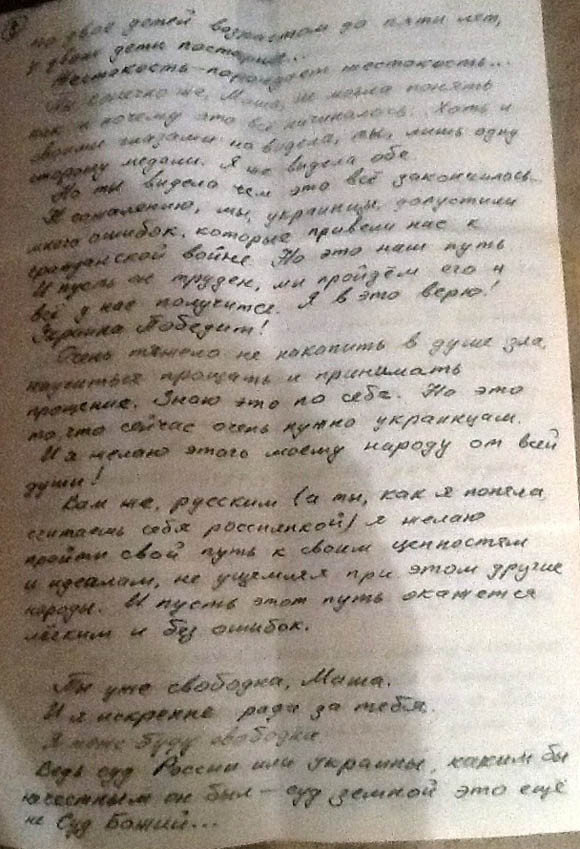 3
по двое детей возрастом до пяти лет,
у двоих дети постарше...
Жестокость порождает жестокость...
Ты конечно же, Маша, не могла понять
как и почему это всё начиналось. Хоть и
своими глазами но видела, ты, лишь одну
сторону медали. Я же видела обе.
Но ты видела чем это всё закончилось...
К сожалению, мы, украинцы, допустили
много ошибок, которые привели нас к
гражданской войне. Но это наш путь
И пусть он труден, мы пройдём его и
всё у нас получится. Я в это верю!
Украина Победит!
Очень тяжело не накопить в душе зла,
научиться прощать и принимать
прощение. Знаю это по себе. Но это
то, что сейчас очень нужно украинцам.
И я желаю этого моему народу от всей
души!
Вам же, русским (а ты, как я поняла,
считаешь себя россиянкой) я желаю
пройти свой путь к своим ценностям
и идеалам, не ущемляя при этом другие
народы. И пусть этот путь окажется
лёгким и без ошибок.
Ты уже свободна, Маша.
И я искренне рада за тебя.
Я тоже буду свободна
Ведь суд России или Украины, каким бы
нечестным он был – суд земной это ещё
не Суд Божий...